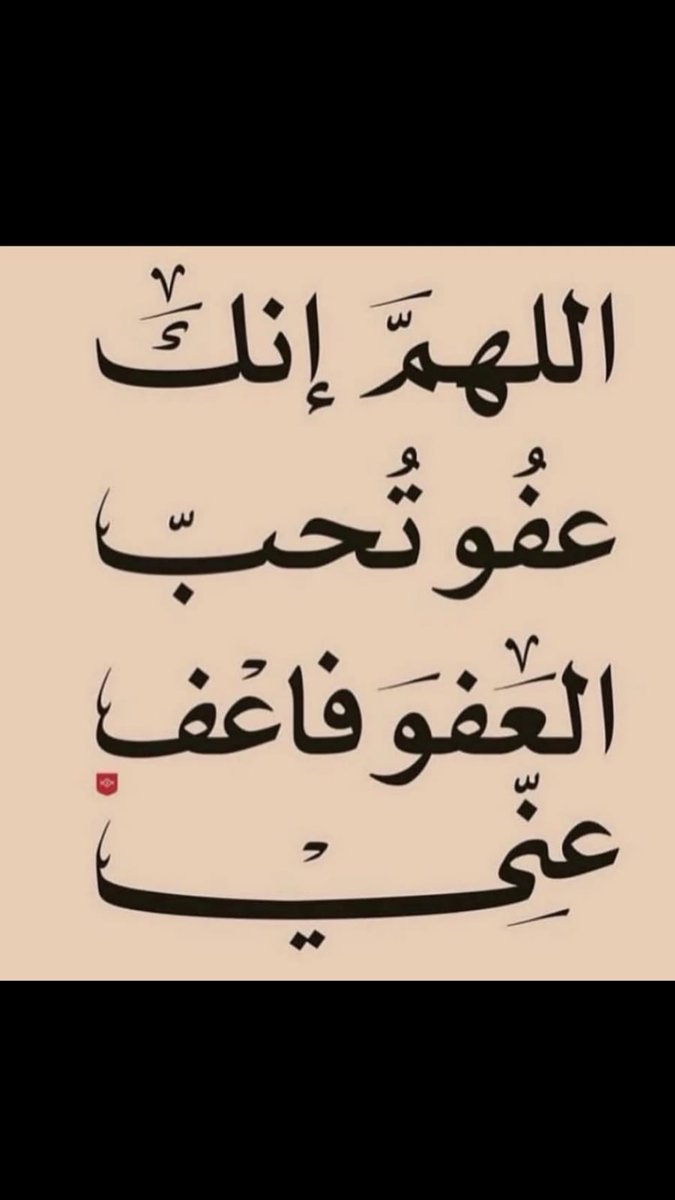 اللهمَّ إنكَ
عفُو تُحبّ
العَفوَ فاعْف
عنِّيْ